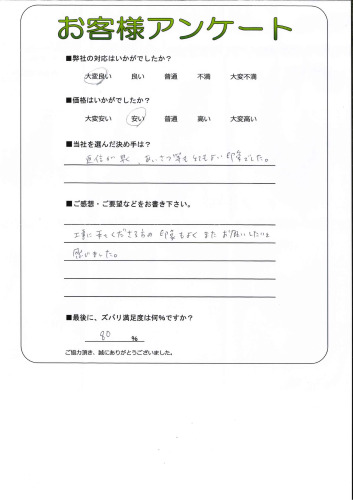 お客様アンケート
■弊社の対応はいかがでしたか?
大変良い 良い 普通 不満 大変不満
■価格はいかがでしたか?
大変安い 安い 普通 高い 大変高い
■当社を選んだ決め手は?
返信が早く、あいさつ等もとてもよい印象でした。
■ご感想・ご要望などをお書き下さい。
工事に来てくださる方の印象もよくまたお願いしたいと
感じました。
■最後に、ズバリ満足度は何%ですか?
80 %
ご協力頂き、誠にありがとうございました。